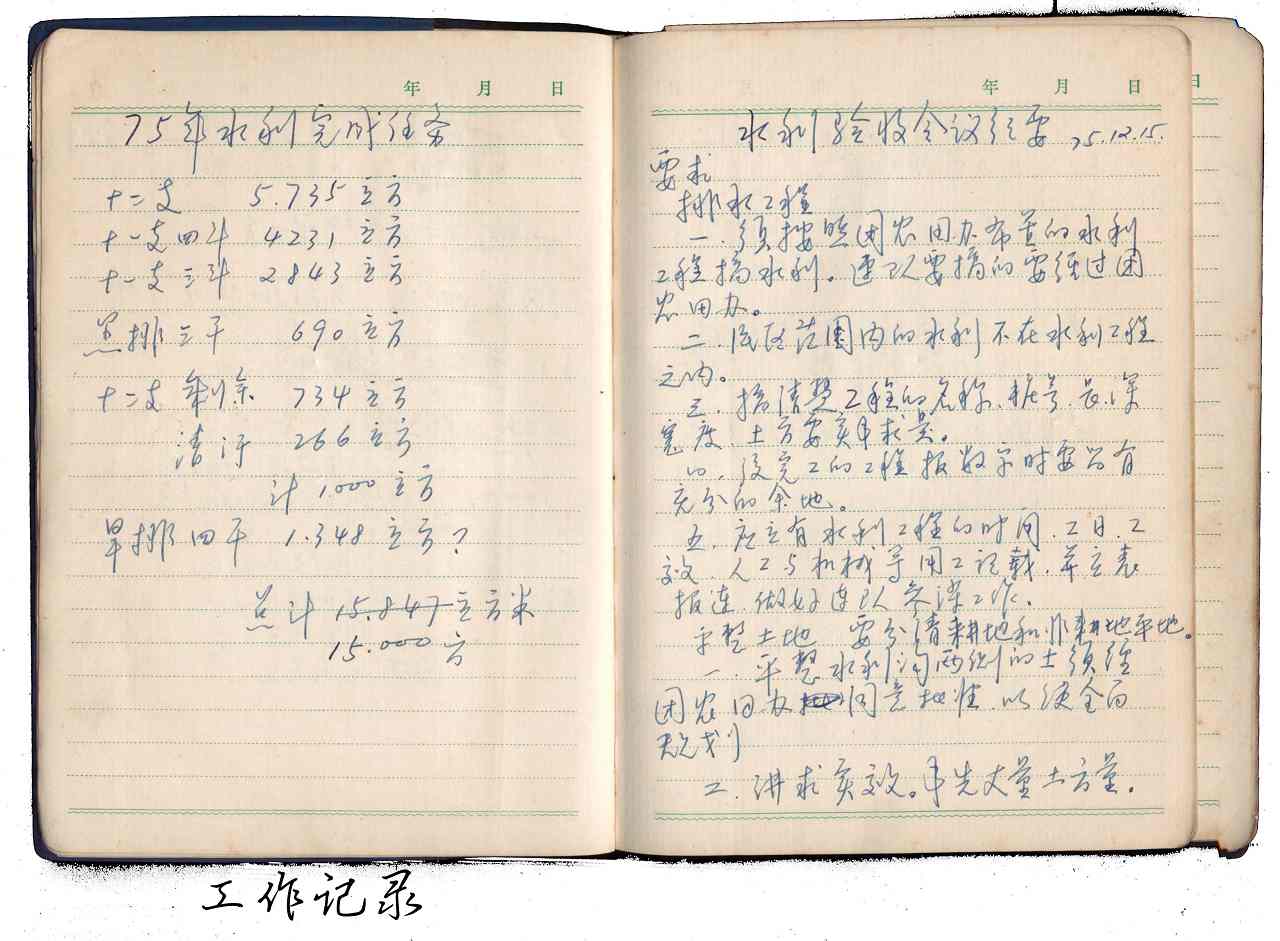 年 月 日
75年水利完成任务
十二支 5.735立方
十一支四斗 4231立方
十一支三斗 2843立方
总排三干 690立方
十二支剩余 734立方
清汙 266立方
计1.000立方
旱排四干 1.348立方?
总计 15.847立方米
15.000方
年 月 日
水利验收会议纪要 75.12.15.
要求
排水工程
一.须按照团农田办布置的水利
工程搞水利。连队要搞的要经过团
农田办。
二.民区范围内的水利不在水利工程
之内。
三.搞清楚工程的名称、桩号、长、深
宽度、土方要实事求是。
四.没完工的工程报数字时要留有
充分的余地。
五.应立有水利工程的时间、工日、工
效、人工与机械等用工记载,并立表
报连,做好连队参谋工作。
平整土地 要分清耕地和非耕地平地。
一.平整水利沟两侧的土须经
团农田办同意批准,以便全面
规划
二.讲求实效。事先丈量土方量。
日
工作记录